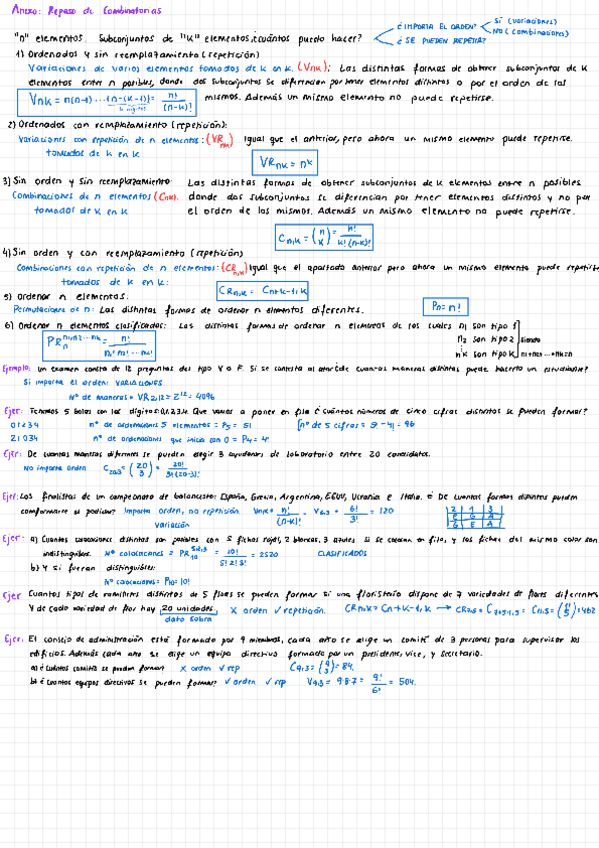 Anexo: Repaso de Combinatorias
"n" elementos. Subconjuntos de "K" elementos ¿cuántos puedo hacer?
¿IMPORTA EL ORDEN? Sí (variaciones)
NO (combinaciones)
¿SE PUEDEN REPETIR?
1) Ordenados y sin reemplazamiento (repetición)
Variaciones de varios elementos tomados de k en k. (Vnk): Las distintas formas de obtener subconjuntos de K
elementos entre n posibles, donde dos subconjuntos se diferencian por tener elementos distintos o por el orden de los
Vnk = n(n-1) ··· (n-(k-1)) = n!/(n-k)! mismos. Además un mismo elemento no puede repetirse.
2) Ordenados con reemplazamiento (repetición):
Variaciones con repetición de n elementos: (VRnk) Igual que el anterior, pero ahora un mismo elemento puede repetirse.
tomados de k en k
VRnk = n^k
3) Sin orden y sin reemplazamiento: Las distintas formas de obtener subconjuntos de k elementos entre n posibles
Combinaciones de n elementos (Cnk) donde dos subconjuntos se diferencian por tener elementos distintos y no por
tomados de k en k el orden de los mismos. Además un mismo elemento no puede repetirse.
Cn,k = (n K) = n!/k!(n-k)!
4) Sin orden y con reemplazamiento (repetición)
Combinaciones con repetición de n elementos: (CRn,k) Igual que el apartado anterior pero ahora un mismo elemento puede repetirse
tomados de k en k:
CRn,k = Cn+k-1,k
5) Ordenar n elementos:
Permutaciones de n: Las distintas formas de ordenar n elementos diferentes. Pn = n!
6) Ordenar n elementos clasificados: Las distintas formas de ordenar n elementos de los cuales n1 son tipo 1
n2 son tipo 2 siendo
nk son tipo K n1+n2+···+nk=n
PRn n1,n2···nk = n!/n1! n2! ··· nk!
Ejemplo: Un examen consta de 12 preguntas del tipo V o F. Si se contesta al azar de cuantas maneras distintas puede hacerlo un estudiante?
Si importa el orden: VARIACIONES
Nº de maneras = VR2,12 = 2^12 = 4096
Ejer: Tenemos 5 bolas con los dígitos 0,1,2,3,4. Que vamos a poner en fila ¿cuántos números de cinco cifras distintos se pueden formar?
01234 nº de ordenaciones 5 elementos = P5 = 5! [nº de 5 cifras = 5!-4! = 96
21034 nº de ordenaciones que inicia con 0 = P4 = 4!
Ejer: De cuantas maneras diferentes se pueden elegir 3 ayudantes de laboratorio entre 20 candidatos.
No importa orden C20,3 = (20 3) = 20!/3!(20-3)!
Ejer: Los finalistas de un campeonato de baloncesto: España, Grecia, Argentina, EEUU, Ucrania e Italia. ¿De cuantas formas distintas pueden
conformarse el podium? Importa orden, no repetición. Vn,k = n!/(n-k)! = V6,3 = 6!/3! = 120
Variación
2 1 3
E G A
G E A
Ejer: a) Cuantas colocaciones distintas son posibles con 5 fichas rojas, 2 blancas, 3 azules si se colocan en fila, y las fichas del mismo color son
indistinguibles. Nº colocaciones = PR10 5,2,3 = 10!/5! 2! 3! = 2520 CLASIFICADOS
b) Y si fueran distinguibles:
Nº colocaciones = P10 = 10!
Ejer Cuantos tipos de ramilletes distintos de 5 flores se pueden formar si una floristería dispone de 7 variedades de flores diferentes
Y de cada variedad de flor hay 20 unidades. X orden ✓ repetición. CRn,k = Cn+k-1,k → CR7,5 = C7+5-1,5 = C11,5 = (11 5) = 462
dato sobra
Ejer: El consejo de administración está formado por 9 miembros, cada año se elige un comité de 3 personas para supervisar los
edificios. Además cada año se elige un equipo directivo formado por un presidente, vice, y secretario.
a) ¿Cuantos comités se pueden formar? X orden ✓ rep C9,3 = (9 3) = 84.
b) ¿Cuantos equipos directivos se pueden formar? ✓ orden ✓ rep V9,3 = 9·8·7 = 9!/6! = 504.